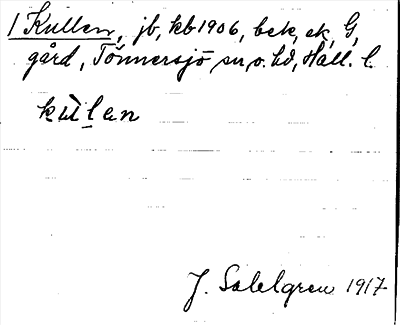 1 Kullen, jb, kb 1906, bek, ek, G,
gård, Tönnersjö sn, o. hd, Hall. l.
kùlen
J. Sahlgren 1917